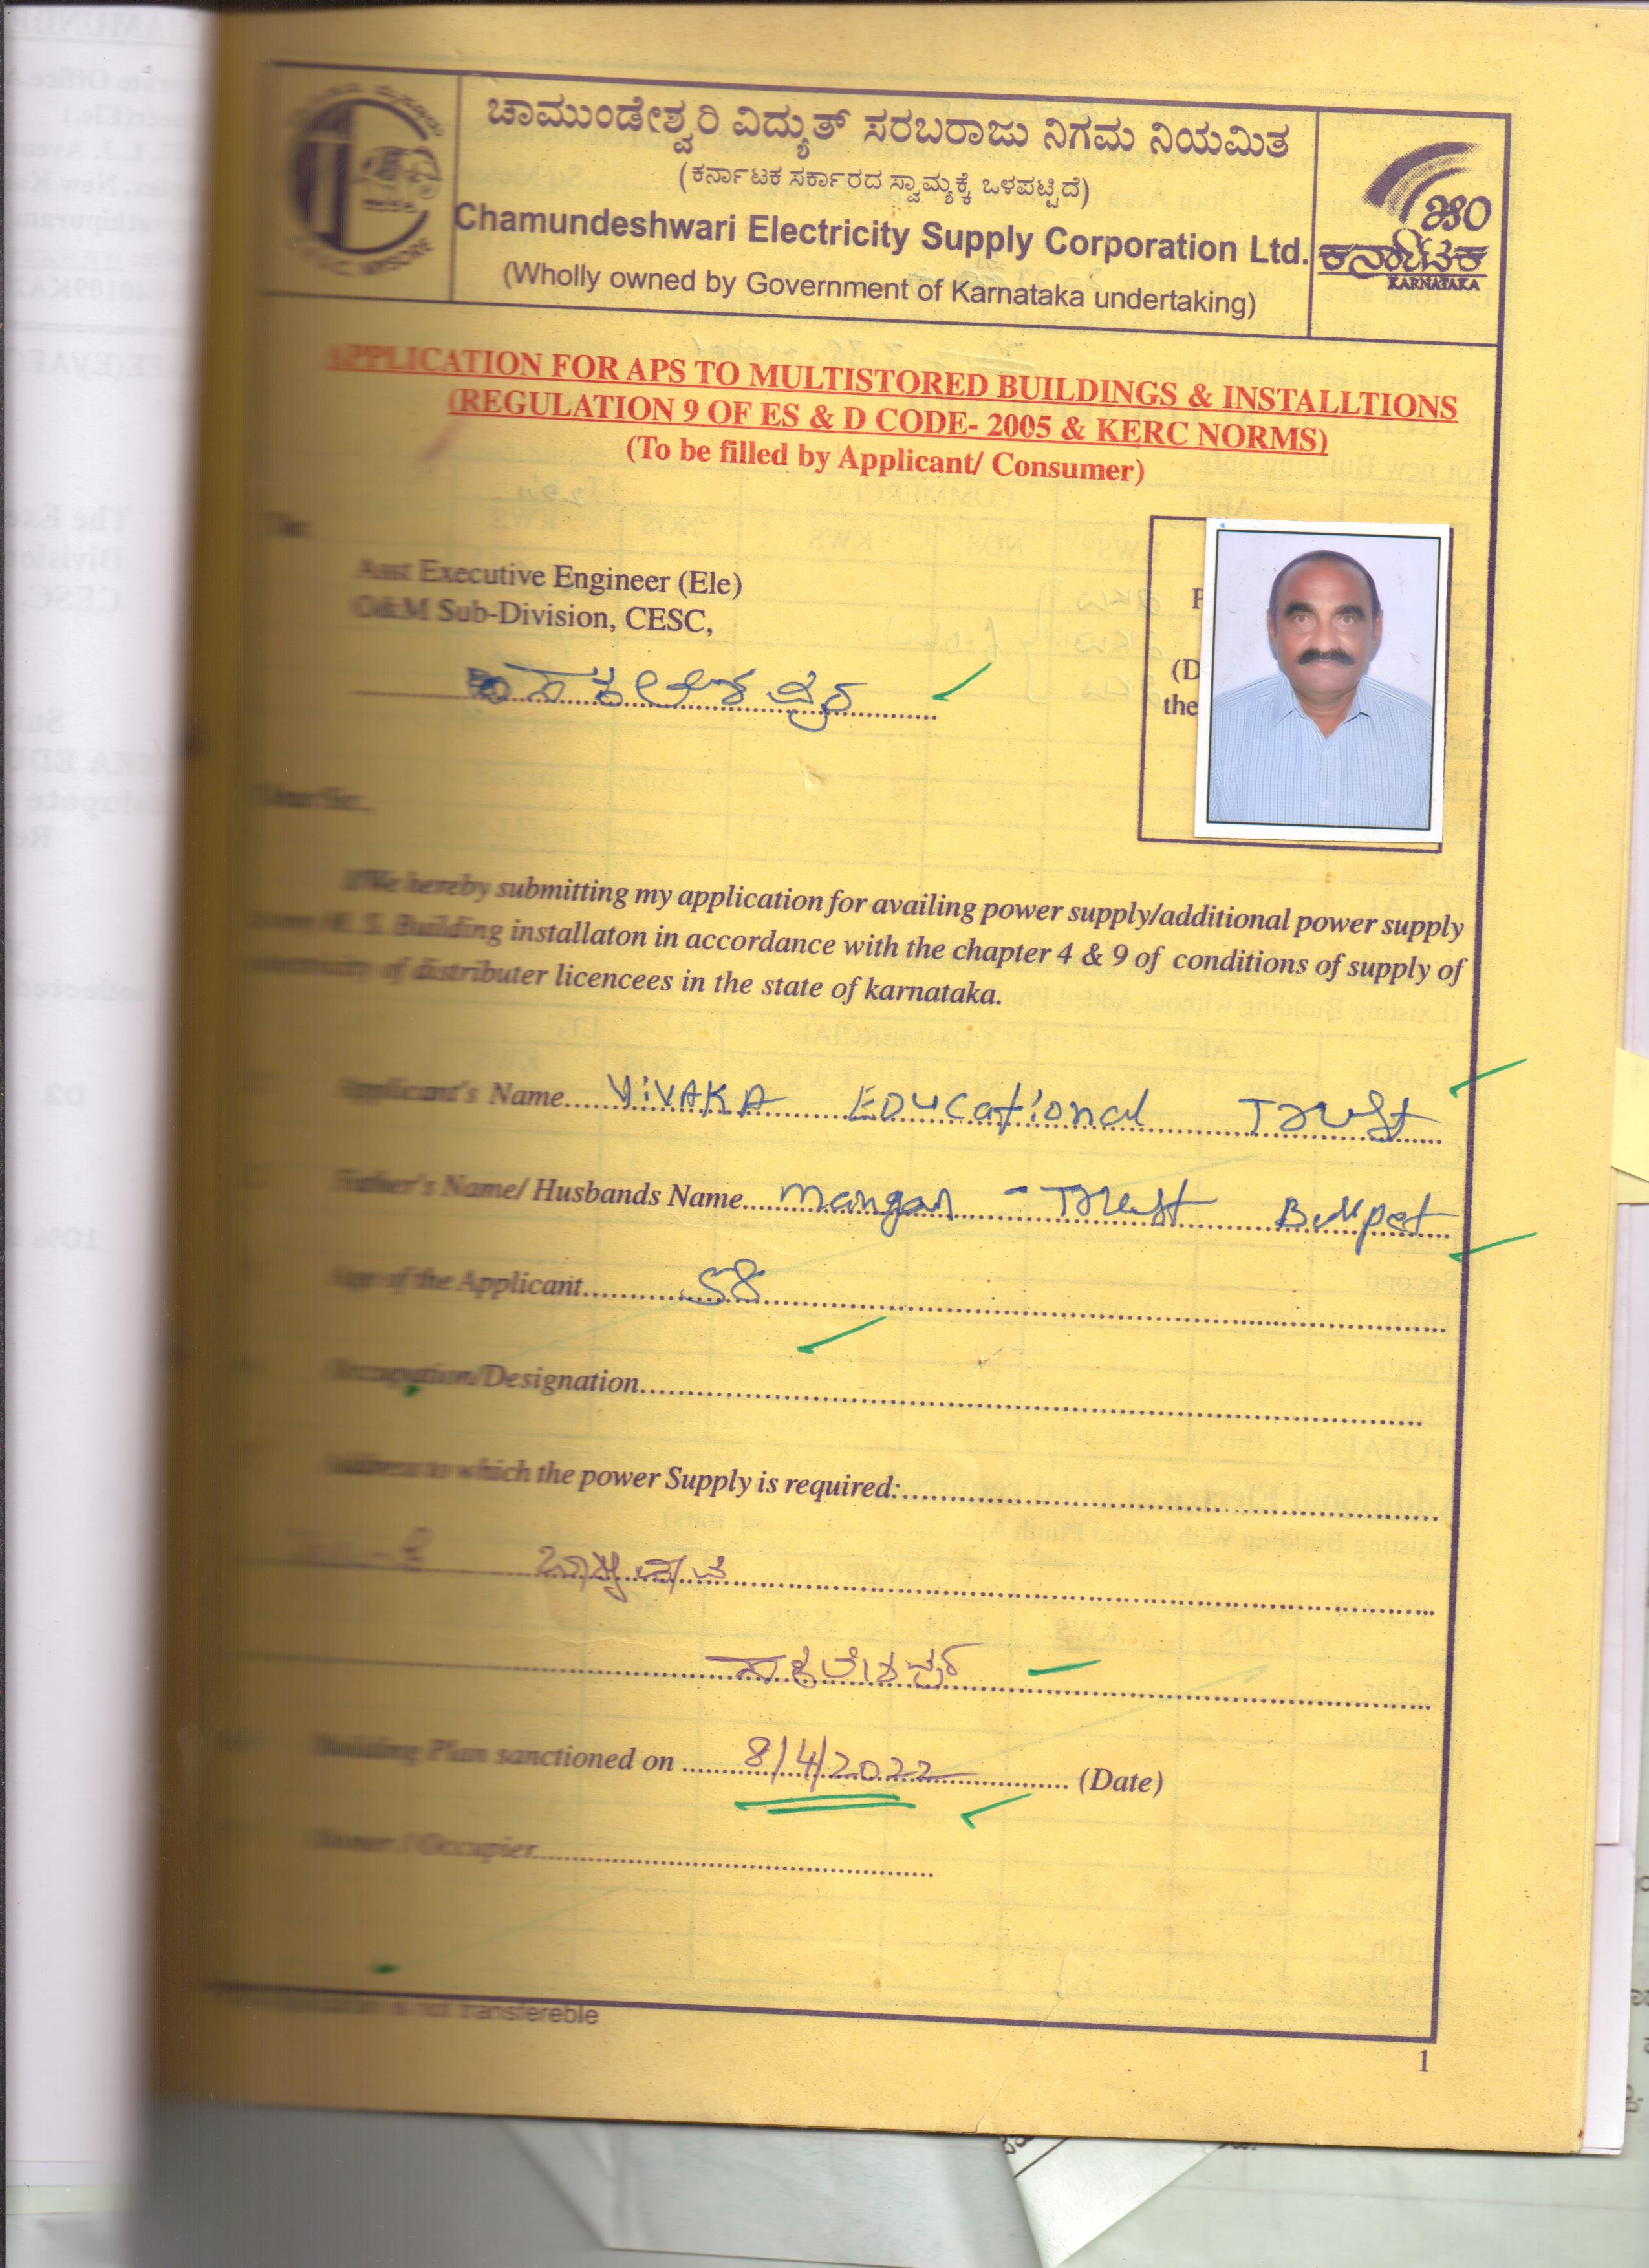 ಚಾಮುಂಡೇಶ್ವರಿ ವಿದ್ಯುತ್ ಸರಬರಾಜು ನಿಗಮ ನಿಯಮಿತ
(ಕರ್ನಾಟಕ ಸರ್ಕಾರದ ಸ್ವಾಮ್ಯಕ್ಕೆ ಒಳಪಟ್ಟಿದೆ)
Chamundeshwari Electricity Supply Corporation Ltd.
(Wholly owned by Government of Karnataka undertaking)
ಕರ್ನಾಟಕ
KARNATAKA
APPLICATION FOR APS TO MULTISTORED BUILDINGS & INSTALLTIONS
(REGULATION 9 OF ES & D CODE- 2005 & KERC NORMS)
(To be filled by Applicant/ Consumer)
Asst Executive Engineer (Ele)
O&M Sub-Division, CESC,
ಸಕಲೇಶಪುರ
(D
the
I/We hereby submitting my application for availing power supply/additional power supply
M. S. Building installaton in accordance with the chapter 4 & 9 of conditions of supply of
of distributer licencees in the state of karnataka.
Applicant's Name..... VIVAKA EDUCational Trust
Father's Name/ Husbands Name.... Trust
Age of the Applicant...... 58
Occupation/Designation......
Address to which the power Supply is required:......
ಸಕಲೇಶಪುರ
Building Plan sanctioned on ..... 8/4/2022 ..... (Date)
Owner / Occupier......
is not transfereble
1